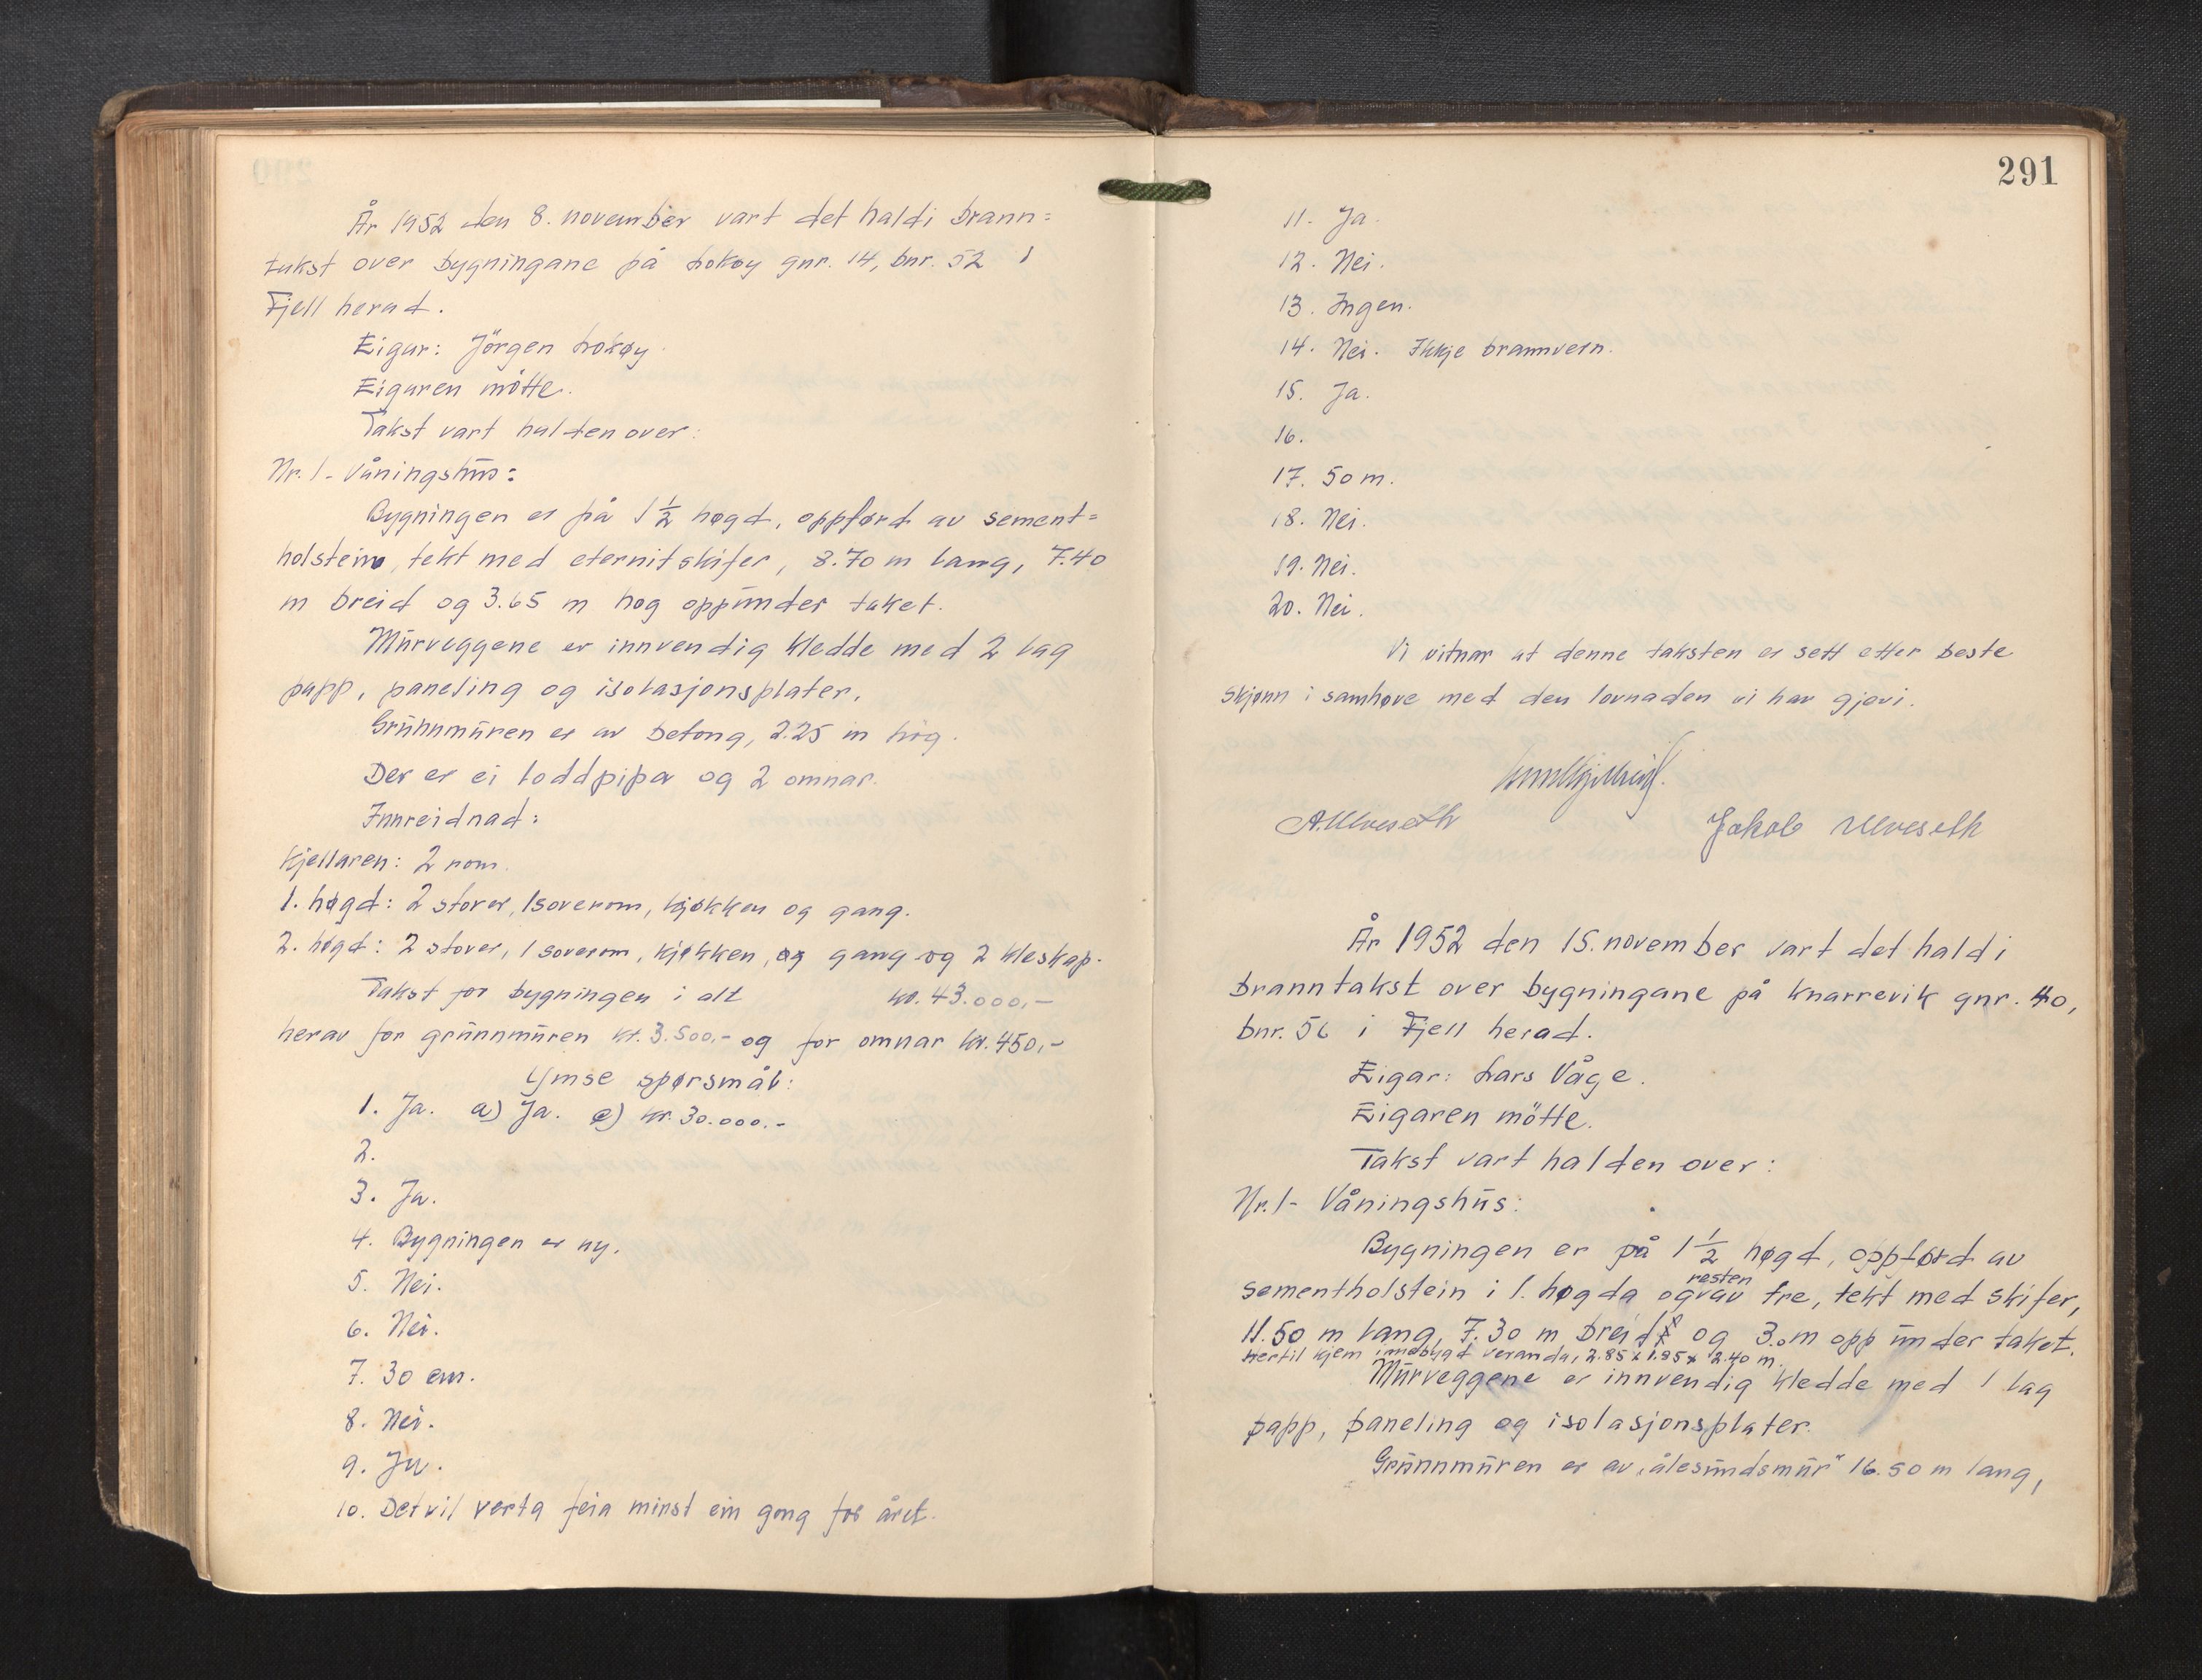 År 1952 den 8. november vart det haldi brann=
takst over bygningane på Lokøy gnr. 14, bnr. 52 i
Fjell herad.
Eigar: Jörgen Lokøy.
Eigaren mötte.
Takst vart halden over:
Nr. 1 - Våningshūs:
Bygningen er på 1 1/2 høgd, oppførd av sement=
holstein, tekt med eternitskifer, 8.70 m lang, 7.40
m breid og 3.65 m høg oppūnder taket.
Mūrveggene er innvendig kledde med 2 lag
papp, paneling og isolasjonsplater.
Grūnnmūren er av betong, 2.25 m høg.
Der er ei loddpipa og 2 omnar.
Innreidnad:
Kjellaren: 2 rom.
1. høgd: 2 stover, 1 soverom, kjøkken og gang.
2. høgd: 2 stover, 1 soverom, kjøkken, og gang og 2 kleskap.
Takst for bygningen i alt kr. 43.000,-
herav for grūnnmūren kr. 3.500,- og for omnar kr. 450,-
Ymse spørsmål:
1. Ja. a) Ja. e) kr. 30.000.-
2.
3. Ja.
4. Bygningen er ny.
5. Nei.
6. Nei.
7. 30 cm.
8. Nei.
9. Ja.
10. Det vil verta feia minst ein gong for året.
291
11. Ja.
12. Nei.
13. Ingen.
14. Nei. Ikkje brannvern.
15. Ja.
16.
17. 50 m.
18. Nei.
19. Nei.
20. Nei.
Vi vitnar at denne taksten er sett etter beste
skjønn i samhøve med den lovnaden vi har gjevi.
A. Ulveseth Jakob Ulveseth
År 1952 den 15. november vart det haldi
branntakst over bygningane på Knarrevik gnr. 40,
bnr. 56 i Fjell herad.
Eigar: Lars Våge.
Eigaren mötte.
Takst vart halden over:
Nr. 1 - Våningshūs:
Bygningen er på 1 1/2 høgd, oppførd av
resten
sementholstein i 1. høgda og av tre, tekt med skifer,
11.50 m lang, 7.30 m breid og 3.0 m opp ūnder taket.
Hertil kjem innebygd veranda, 2.85 x 1.95 x 2.40 m.
Mūrveggene er innvendig kledde med 1 lag
papp, paneling og isolasjonsplater.
Grūnnmūren er av „ålesūndsmūr" 16.50 m lang,